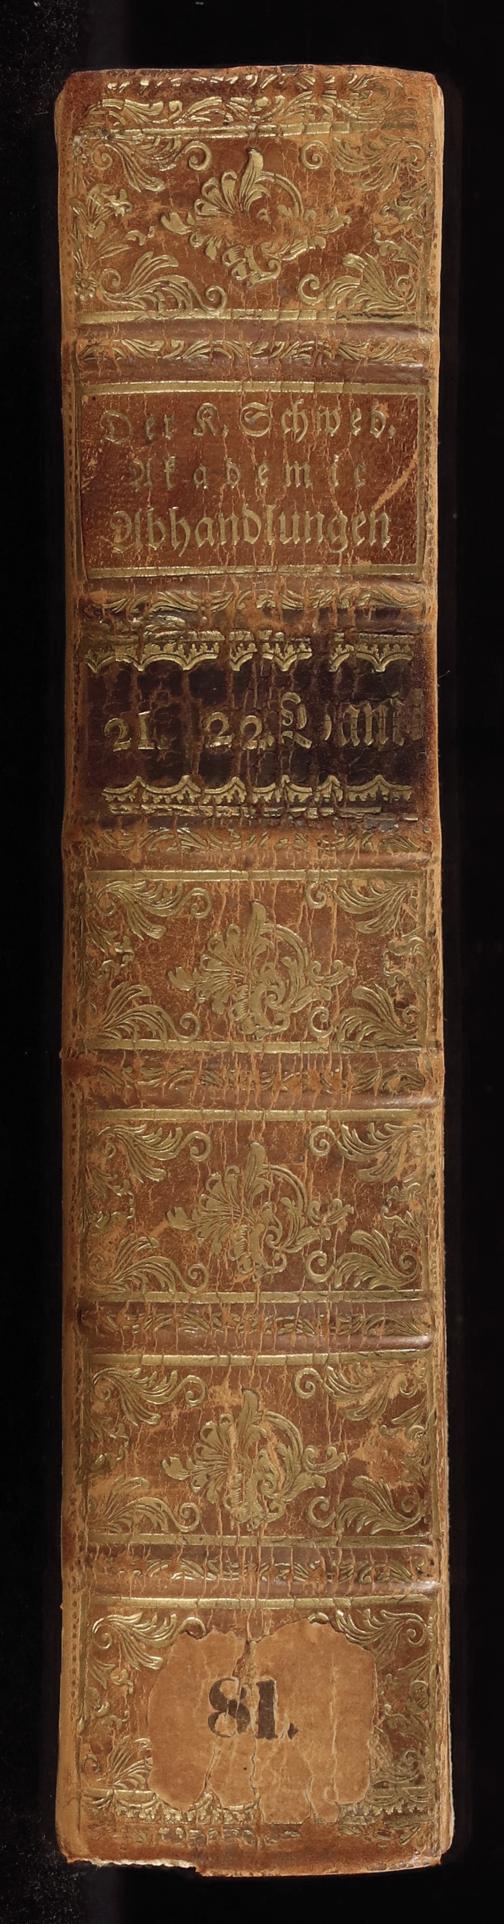 Der K. Schwed.
Akademie
Abhandlungen
21. 22. Band
81.